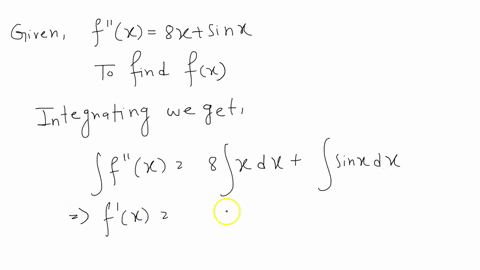 Given, f''(x) = 8x + sinx
To find f(x)
Integrating we get,
∫ f''(x) = 8 ∫ x dx + ∫ sinx dx
=> f'(x) =